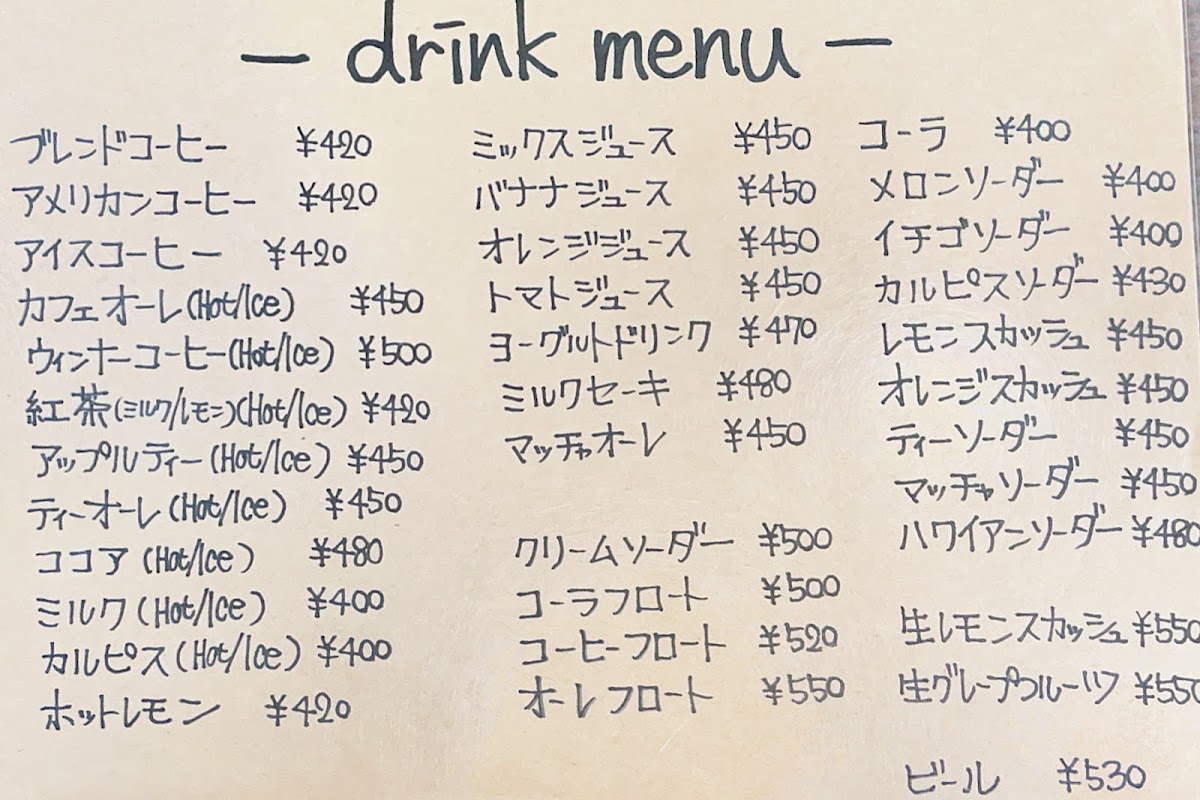 - drink menu -
ブレンドコーヒー ¥420
アメリカンコーヒー ¥420
アイスコーヒー ¥420
カフェオーレ(Hot/Ice) ¥450
ウィンナーコーヒー(Hot/Ice) ¥500
紅茶(ミルク/レモン)(Hot/Ice) ¥420
アップルティー(Hot/Ice) ¥450
ティーオーレ(Hot/Ice) ¥450
ココア(Hot/Ice) ¥480
ミルク(Hot/Ice) ¥400
カルピス(Hot/Ice) ¥400
ホットレモン ¥420
ミックスジュース ¥450
バナナジュース ¥450
オレンジジュース ¥450
トマトジュース ¥450
ヨーグルトドリンク ¥470
ミルクセーキ ¥480
マッチャオーレ ¥450
クリームソーダー ¥500
コーラフロート ¥500
コーヒーフロート ¥520
オーレフロート ¥550
コーラ ¥400
メロンソーダー ¥400
イチゴソーダー ¥400
カルピスソーダー ¥430
レモンスカッシュ ¥450
オレンジスカッシュ ¥450
ティーソーダー ¥450
マッチャソーダー ¥450
ハワイアンソーダー ¥480
生レモンスカッシュ ¥550
生グレープフルーツ ¥550
ビール ¥530